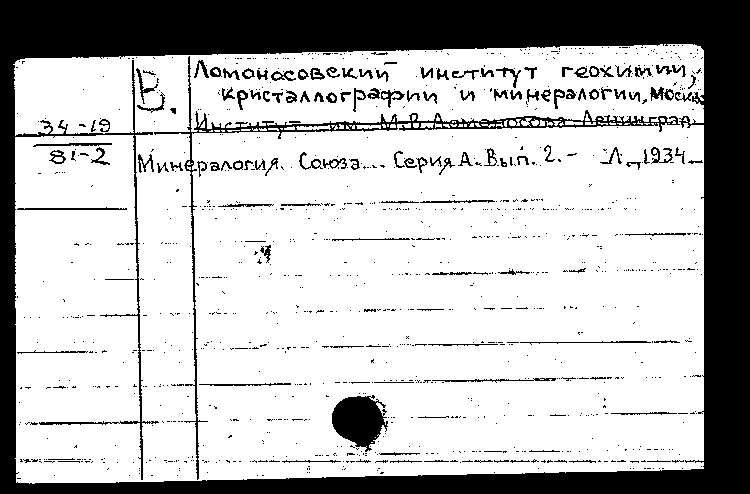 Ломоносовский институт геохимии,
В. кристаллографии и минералогии, Москва
34-19 Институт им. М.В. Ломоносова Ленинград
81-2 Минералогия Союза... Серия А. Вып. 2. - Л., 1934